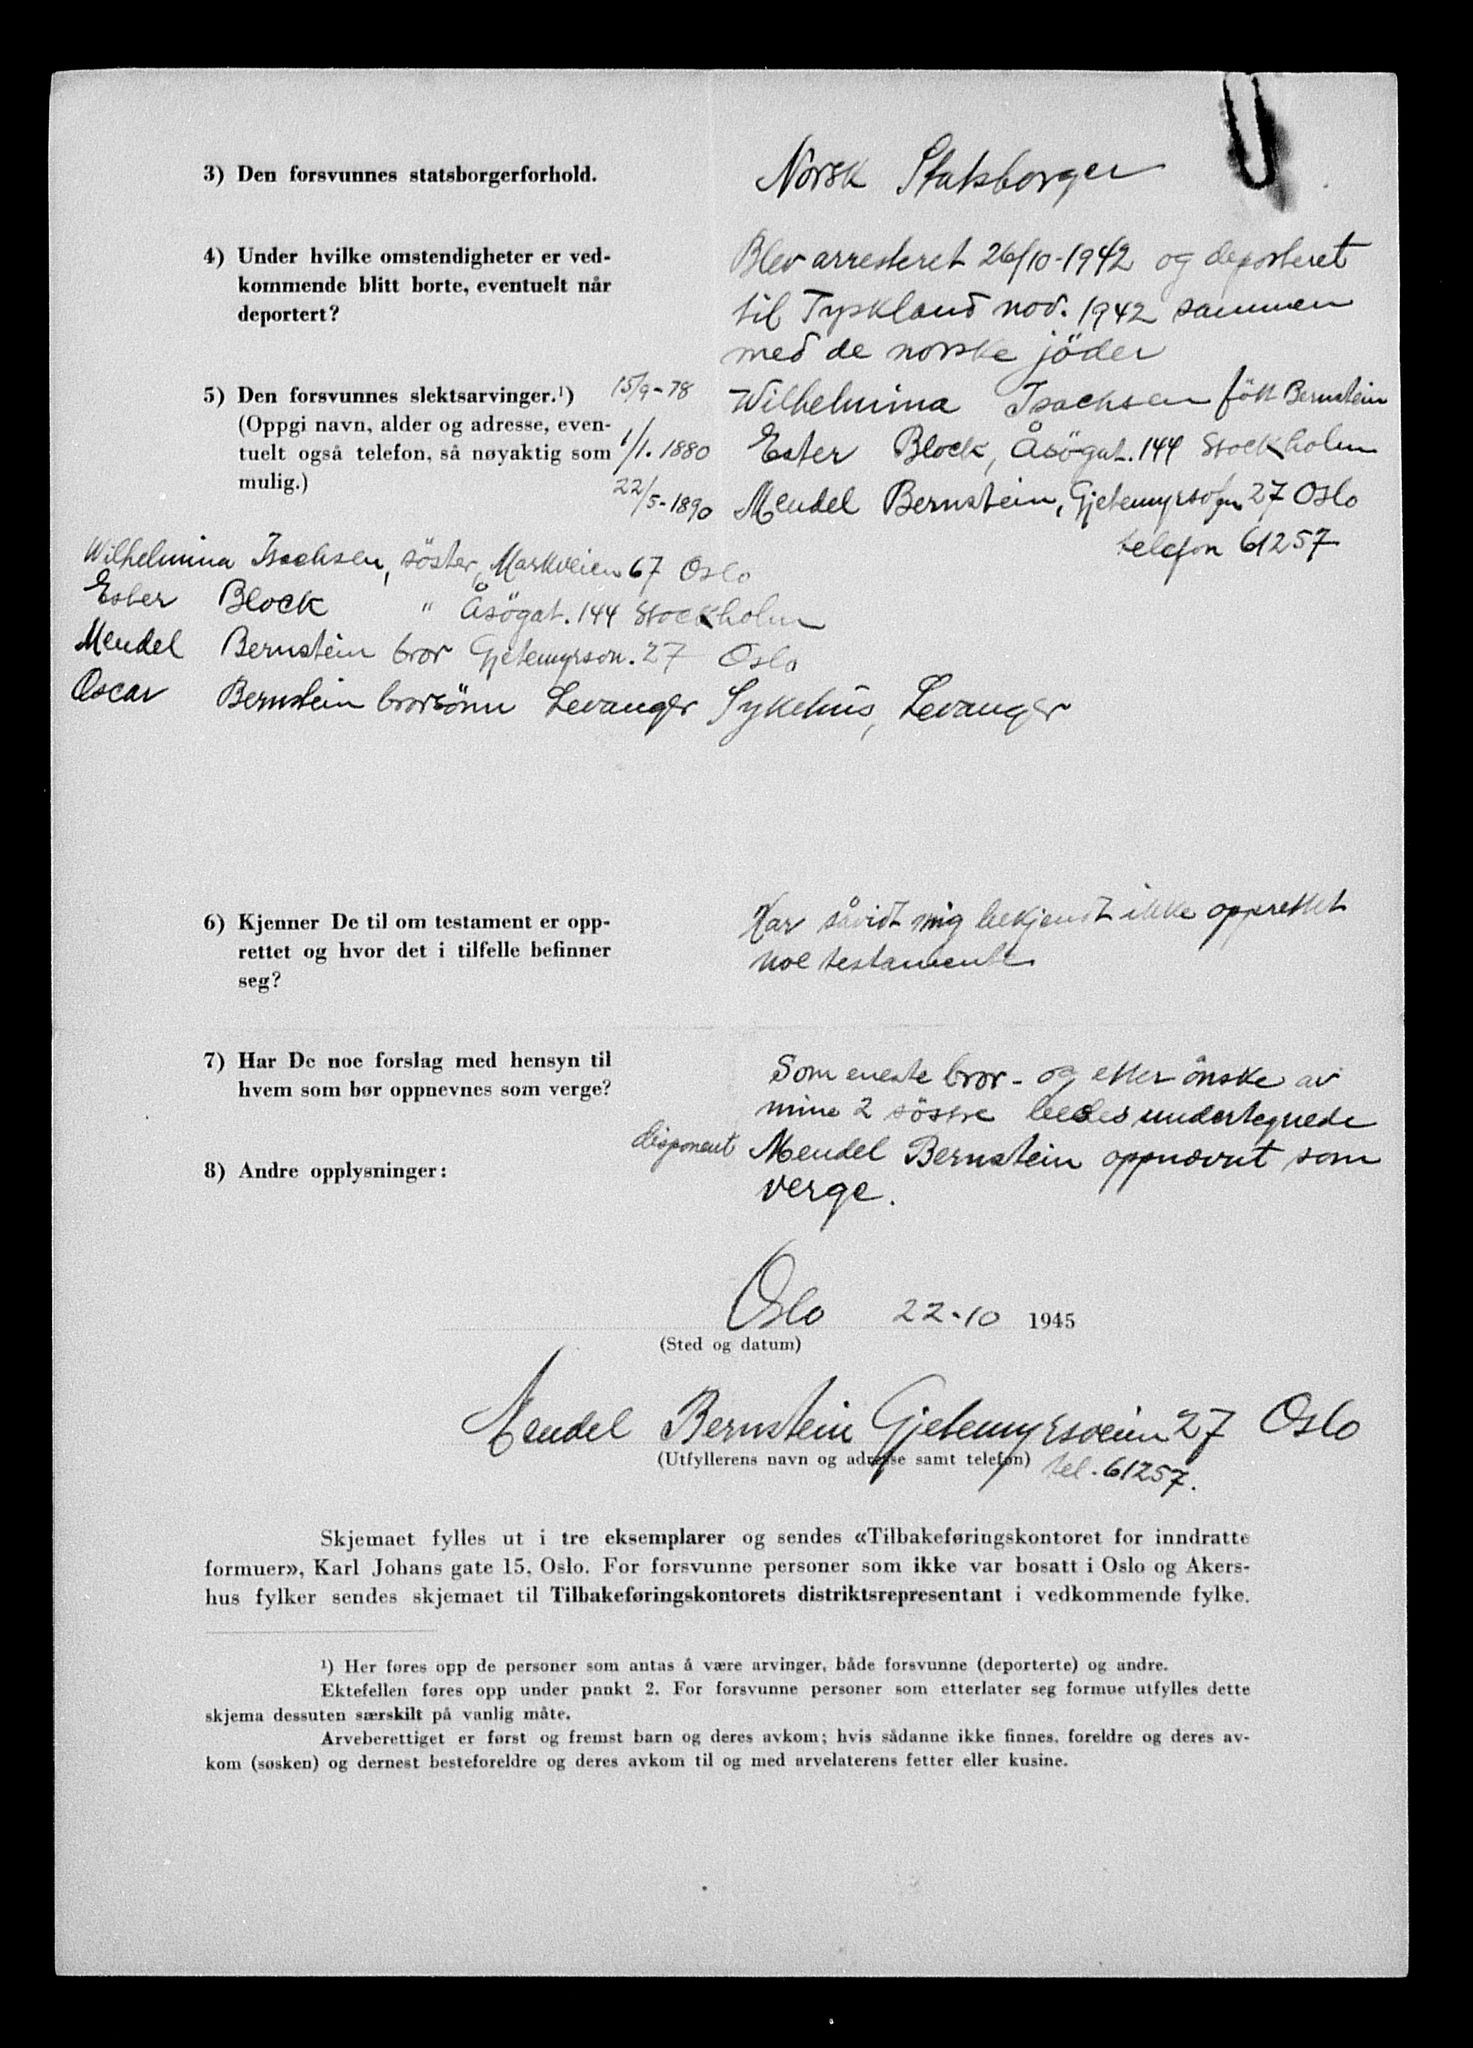 3) Den forsvunnes statsborgerforhold.
Norsk Statsborger
4) Under hvilke omstendigheter er ved-
kommende blitt borte, eventuelt når
deportert?
Blev arresteret 26/10-1942 og deporteret
til Tyskland nov. 1942 sammen
med de norske jöder
5) Den forsvunnes slektsarvinger.¹)
(Oppgi navn, alder og adresse, even-
tuelt også telefon, så nøyaktig som
mulig.)
15/9-78 Wilhelmina Isachsen föt Bernstein
1/1.1880 Ester Block, Åsögat. 144 Stockholm
22/5-1890 Mendel Bernstein, Gjetemyrsvn 27 Oslo
telefon 61257
Wilhelmina Isachsen, söster, Markveien 67 Oslo
Ester Block " Åsögat. 144 Stockholm
Mendel Bernstein bror Gjetemyrsvn. 27 Oslo
Oscar Bernstein brorsönn Levanger Sykehus, Levanger
6) Kjenner De til om testament er opp-
rettet og hvor det i tilfelle befinner
seg?
Har såvidt mig bekjendt ikke opprettet
noe testamente
7) Har De noe forslag med hensyn til
hvem som bør oppnevnes som verge?
Som eneste bror - og etter önske av
mine 2 söstre bedes undertegnede
disponent Mendel Bernstein oppnevnt som
verge.
8) Andre opplysninger:
Oslo 22-10 1945
(Sted og datum)
Mendel Bernstein Gjetemyrsveien 27 Oslo
(Utfyllerens navn og adresse samt telefon) tel. 61257.
Skjemaet fylles ut i tre eksemplarer og sendes «Tilbakeføringskontoret for inndratte
formuer», Karl Johans gate 15, Oslo. For forsvunne personer som ikke var bosatt i Oslo og Akers-
hus fylker sendes skjemaet til Tilbakeføringskontorets distriktsrepresentant i vedkommende fylke.
¹) Her føres opp de personer som antas å være arvinger, både forsvunne (deporterte) og andre.
Ektefellen føres opp under punkt 2. For forsvunne personer som etterlater seg formue utfylles dette
skjema dessuten særskilt på vanlig måte.
Arveberettiget er først og fremst barn og deres avkom; hvis sådanne ikke finnes, foreldre og deres av-
kom (søsken) og dernest besteforeldre og deres avkom til og med arvelaterens fetter eller kusine.